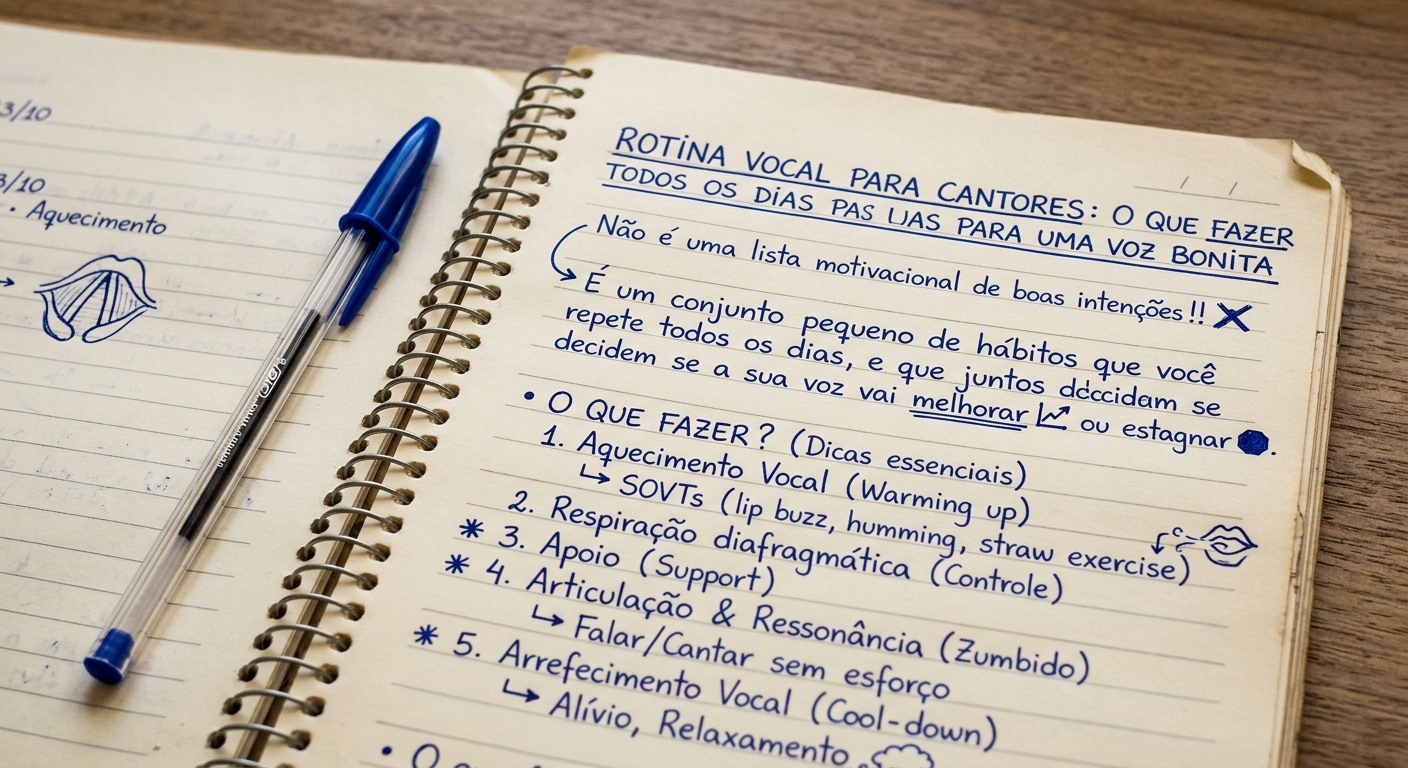 3/10
3/10
• Aquecimento
ROTINA VOCAL PARA CANTORES: O QUE FAZER
TODOS OS DIAS PARA UMA VOZ BONITA
Não é uma lista motivacional de boas intenções!!
É um conjunto pequeno de hábitos que você
repete todos os dias, e que juntos se
decidem se a sua voz vai melhorar ou estagnar.
• O QUE FAZER? (Dicas essenciais)
1. Aquecimento Vocal (Warming up)
↳ SOVTs (lip buzz, humming, straw exercise)
2. Respiração diafragmática (Controle)
* 3. Apoio (Support)
* 4. Articulação & Ressonância (Zumbido)
↳ Falar/Cantar sem esforço
* 5. Arrefecimento Vocal (Cool-down)
↳ Alívio, Relaxamento
• O